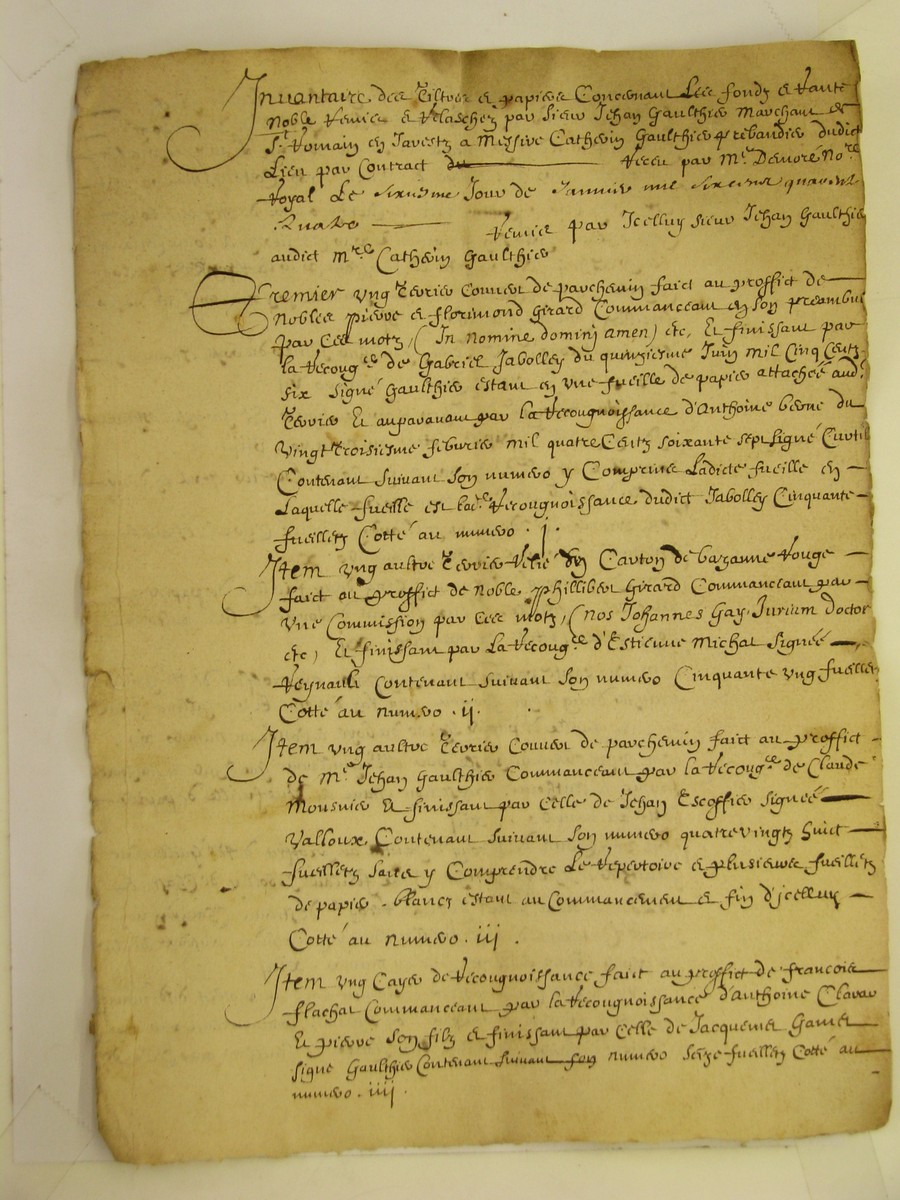 Inuantaire des Tiltres et papiers Concernant Les fondz et Rante
Noble Remis et Relaschez par sieur Jehan Gaulthier Marchant de
St Romain en Jarestz a Messire Catherin Gaulthier prebandier dudict
Lieu par Contract receu par Me Demoré Nore
Royal Le sixiesme Jour de Januier mil six centz quarente
Quatre Remis par Icelluy sieur Jehan Gaulthier
audict Mre Catherin Gaulthier
Premier vng Terrier Couuert de parchemin faict au proffict de
Nobles pierre et florimond Girard Commanceant en son preambule
par Ces motz, (In nomine dominj amen) etc, Et finissant par
la Recougce de Gabriel Jabolley du quinziesme Juin mil Cinq Centz
six signé Gaulthier estant en vne fueille de papier attachée aud.
Terrier Et auparauant par la Recougnoissance d'Anthoine berne du
vingt troisiesme feburier mil quatre Centz soixante sept signé Curtil
Contenant suiuant son numero y Comprins Ladicte fueille en
Laquelle fueille est lade Recougnoissance dudict Jabolley Cinquante
fueilletz Cotté au numero . j .
Item vng aultre Terrier Relié en Carton de bazanne Rouge
faict au proffict de Noble phillibert Girard Commanceant par
vne Commission par Ces motz, (Nos Johannes Gay Jurium doctor
etc) Et finissant par La Recougce d'Estienne Michat Signée
Reynauli Contenant suiuant son numero Cinquante vng fueilletz
Cotté au numero . ij .
Item vng aultre Terrier Couuert de parchemin faict au proffict
de Me Jehan Gaulthier Commanceant par la Recougce de Claude
Mousnier Et finissant par Celle de Jehan Escoffier signée
Valloux Contenant suiuant son numero quatre vingtz huict
fueilletz sans y Comprendre Le Repertoire et plusieurs fueilletz
de papier blancz estant au Commancement et fin d'jcelluy
Cotté au numero . iij .
Item vng Cayer de Recougnoissance faict au proffict de francois
flachat Commanceant par la Recougnoissance d'anthoine Clauar
Et pierre son filz et finissant par Celle de Jacquemet Gamet
signé Gaulthier Contenant suiuant son numero seize fueilletz Cotté au
numero . iiij .